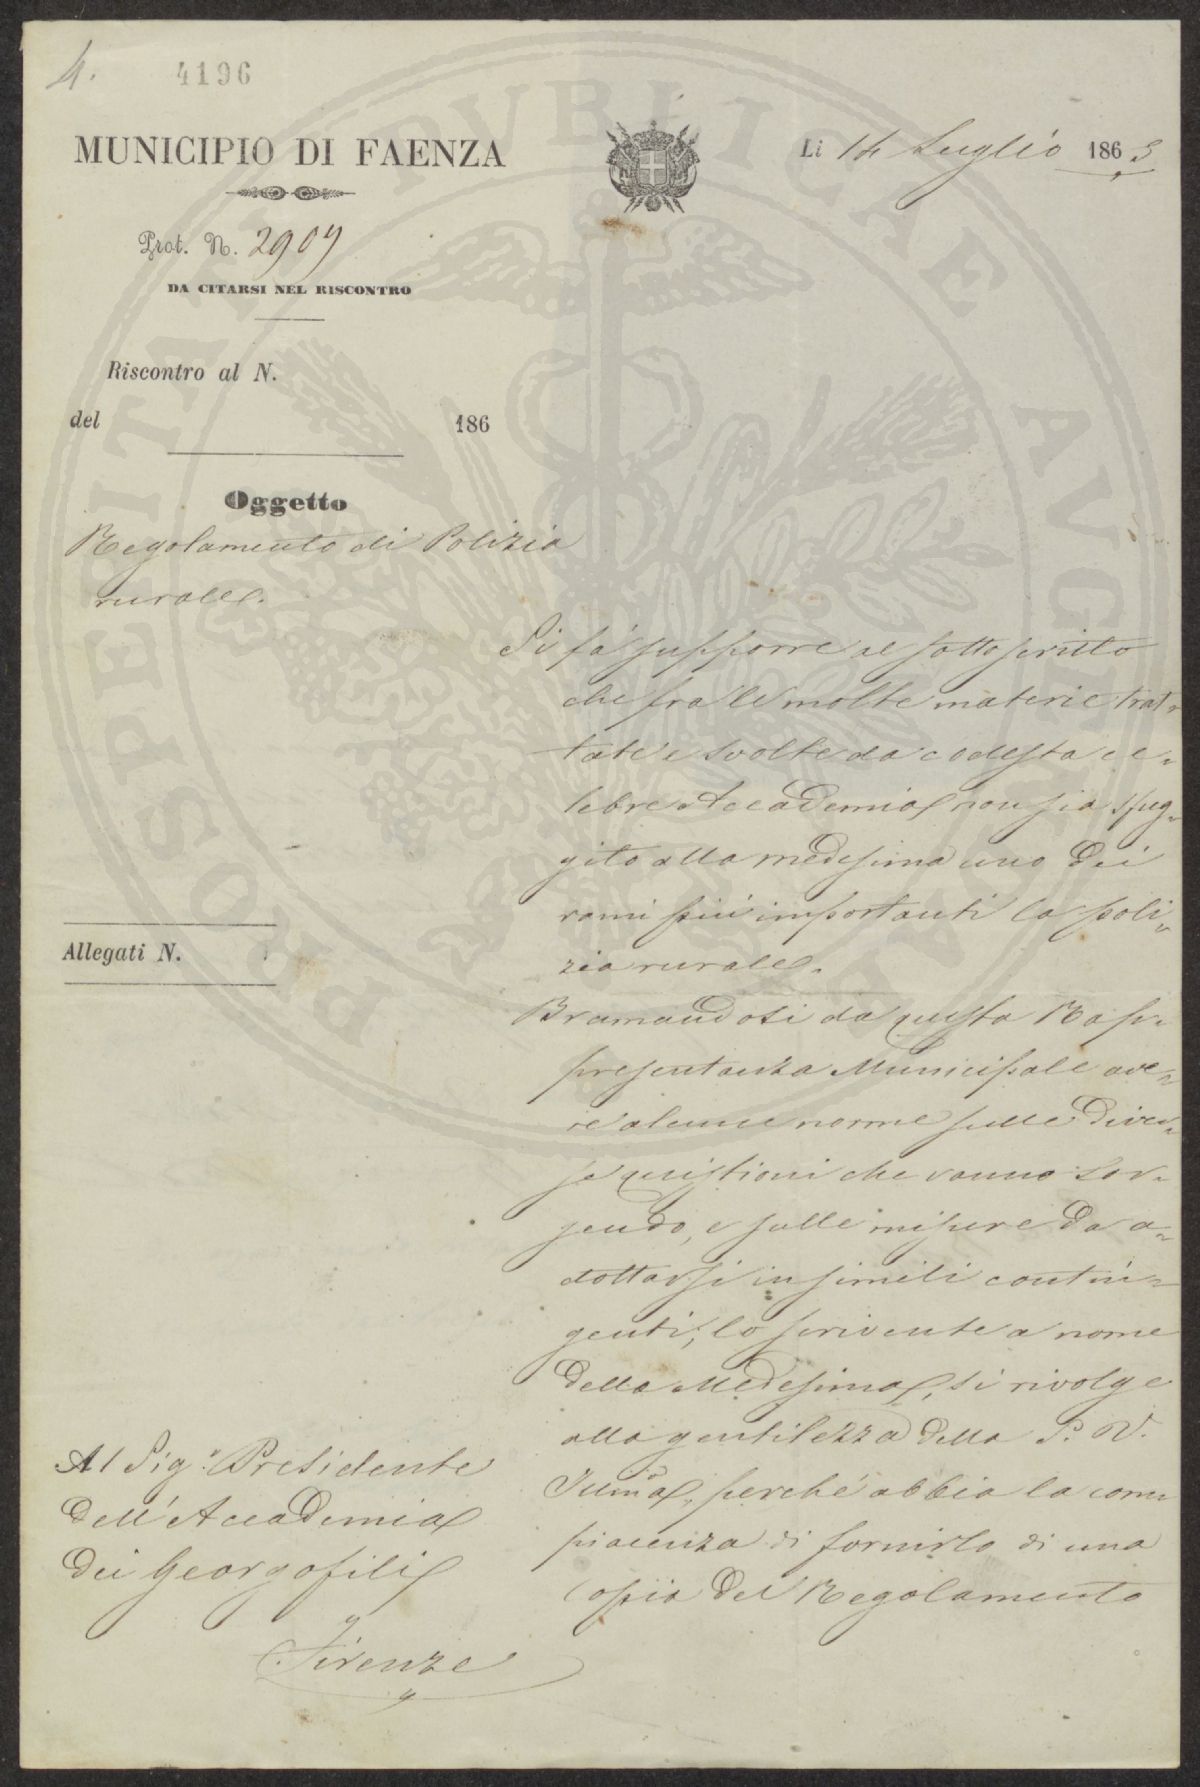 4.
4196
MUNICIPIO DI FAENZA
Li 14 Luglio 1863
Prot. N. 2909
DA CITARSI NEL RISCONTRO
Riscontro al N.
del 186
Oggetto
Regolamento di Polizia
rurale.
Allegati N.
Si fà supporre al sottoscritto
che fra le molte materie trat-
tate e svolte da codesta ce-
lebre Accademia non sia sfug-
gito alla medesima uno dei
rami più importanti la poli-
zia rurale.
Bramandosi da questa Rap-
presentanza Municipale ave-
re alcune norme sulle diver-
se quistioni che vanno sor-
gendo, e sulle misure da a-
dottarsi in simili contin-
genti, lo scrivente a nome
della Medesima, si rivolge
alla gentilezza della S. V.
Illma, perché abbia la com-
piacenza di fornirlo di una
copia del Regolamento
Al Sigr. Presidente
dell'Accademia
dei Georgofili
Firenze
PROSPERITATI PVBLICAE AVGENDAE